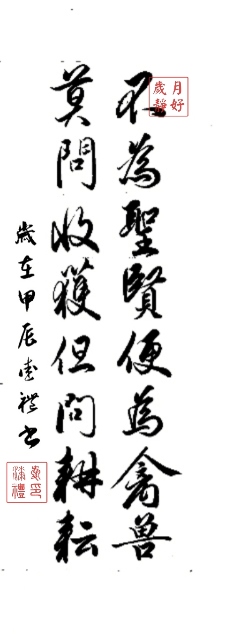 不為聖賢便為禽兽
莫問收獲但問耕耘
歲在甲辰
書
月好
歲靜